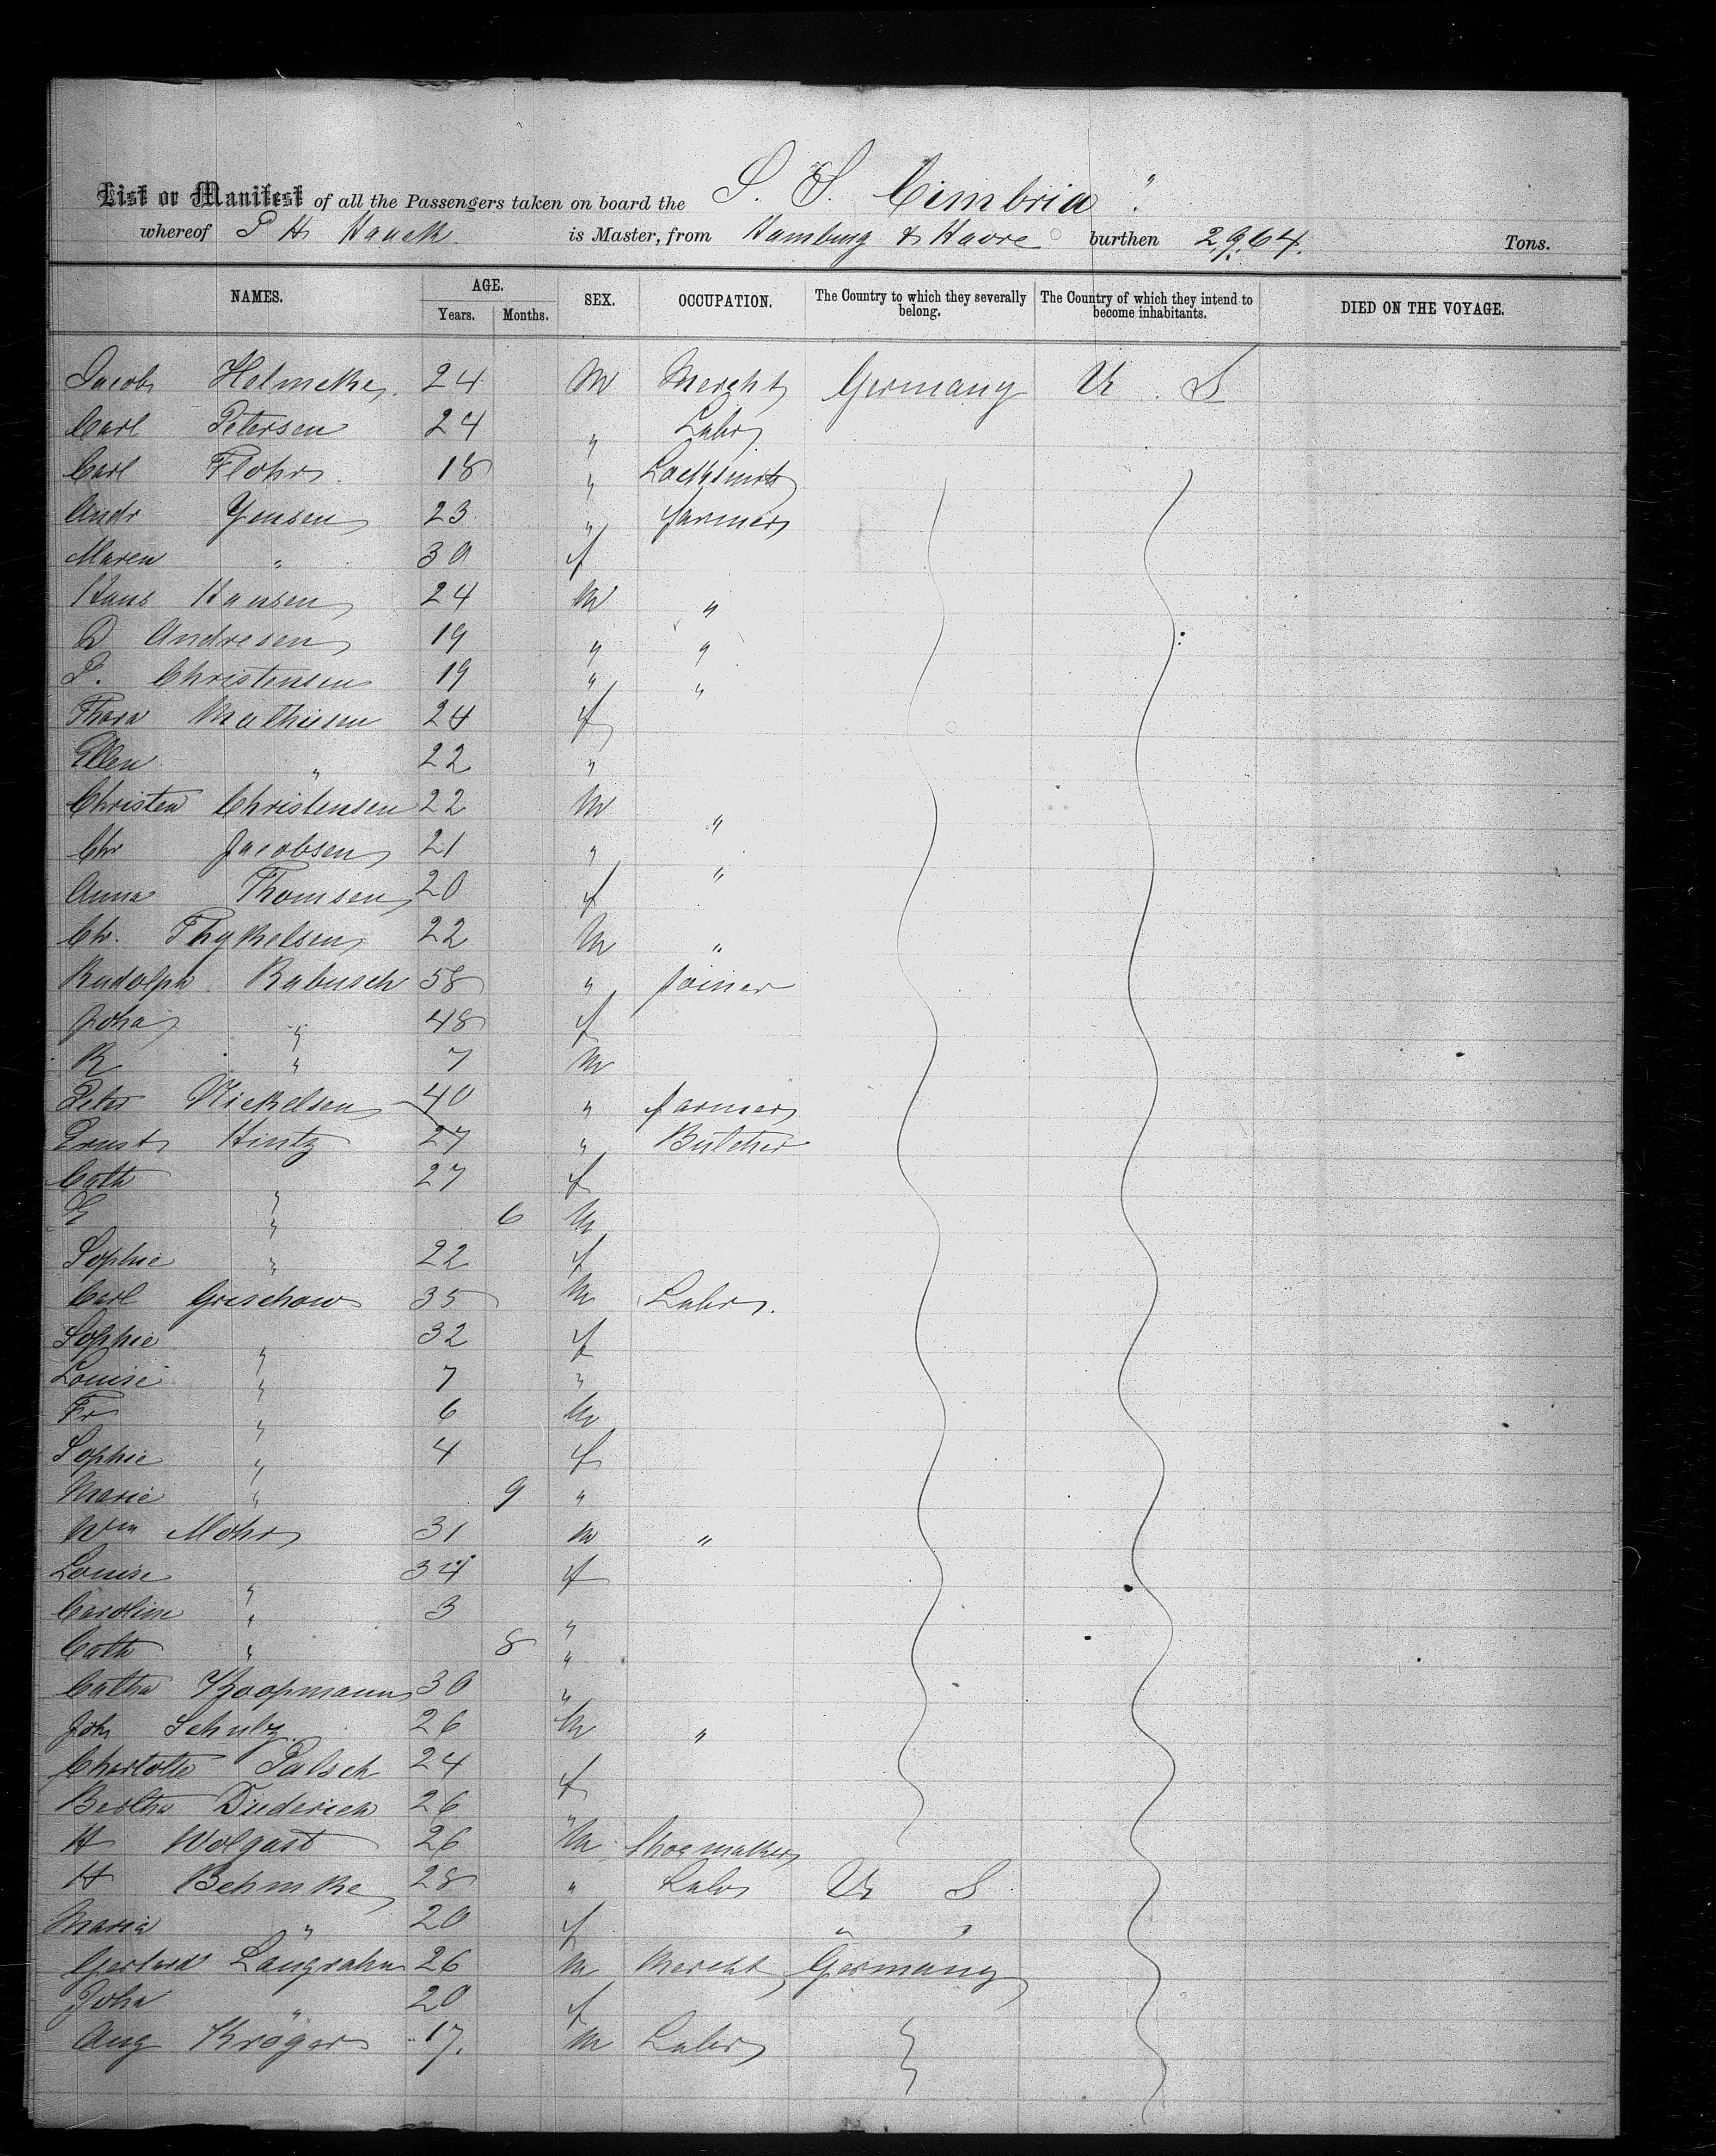 List or Manifest of all the Passengers taken on board the S. S. Cimbria
whereof P H Haack is Master, from Hamburg & Havre burthen 2,964. Tons.
NAMES. AGE. SEX. OCCUPATION. The Country to which they severally belong. The Country of which they intend to become inhabitants. DIED ON THE VOYAGE.
Years. Months.
Jacob Helmcke 24 M Mercht Germany U S
Carl Petersen 24 " Labr
Carl Flohr 18 " Locksmith
Andr Jensen 23 " farmer
Maren " 30 f
Hans Hansen 24 M "
D Andresen 19 " "
P. Christensen 19 " "
Thora Mathiesen 24 f
Ellen " 22 "
Christen Christensen 22 M "
Chr Jacobsen 21 " "
Anna Thomsen 20 f
Chr. Thykelsen 22 M "
Rudolph Rabusch 58 " Joiner
Joha " 48 f
R " 7 M
Peter Nickelsen 40 " farmer
Ernst Hintz 27 " Butcher
Cath " 27 f
E " 6 M
Sophie " 22 f
Carl Greschow 35 M Labr.
Sophie " 32 f
Louise " 7 "
Fr " 6 M
Sophie " 4 f
Marie " 9 "
Wm Mohr 31 M "
Louise " 34 f
Caroline " 3 "
Cath " 8 "
Catha Koopmann 30 "
Joh Schulz 26 M "
Charlotte Palsch 24 f
Bertha Diederich 26 "
H Wolgast 26 M Shoemaker
H Behmke 28 " Labr U S
Maria " 20 f " "
Gerhard Langrahn 26 M Mercht Germany
Joha " 20 f
Aug Kröger 17. M Labr